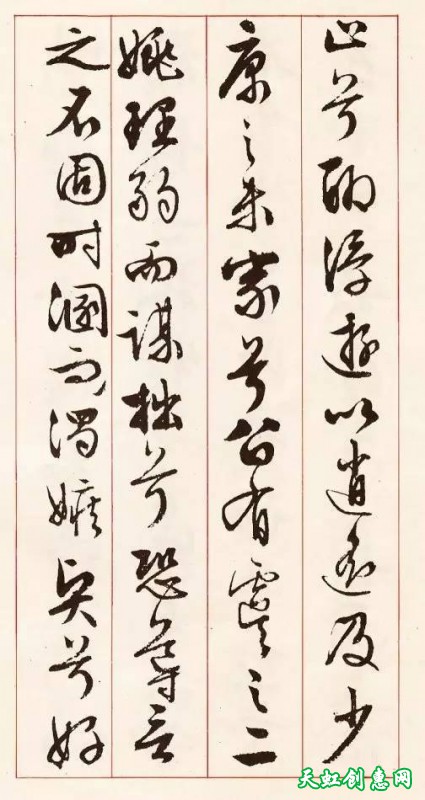 止兮聊浮遊以逍遥及少
康之未家兮留有虞之二
姚理弱而謀拙兮恐導言
之不固时溷而濁嫉賢兮好
天虹创意网